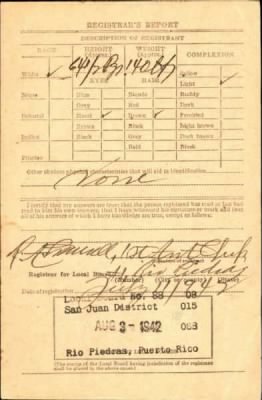 REGISTRAR'S REPORT
DESCRIPTION OF REGISTRANT
RACE HEIGHT (Approx.) WEIGHT (Approx.) COMPLEXION
White ✓ Sallow
EYES HAIR Light
Negro Blue Blonde Ruddy
Gray Red Dark
Oriental Hazel ✓ Brown ✓ Freckled
Brown Black Light brown
Indian Black Gray Dark brown
Bald Black
Filipino
Other obvious physical characteristics that will aid in identification
None
I certify that my answers are true; that the person registered has read or has had
read to him his own answers; that I have witnessed his signature or mark and that
all of his answers of which I have knowledge are true, except as follows:
Registrar for Local Board
(Number) (City or county) (State)
Date of registration July
Local Board No. 88 08
San Juan District 015
AUG 3 - 1942 088
Rio Piedras, Puerto Rico
(The stamp of the Local Board having jurisdiction of the registrant
shall be placed in the above space)